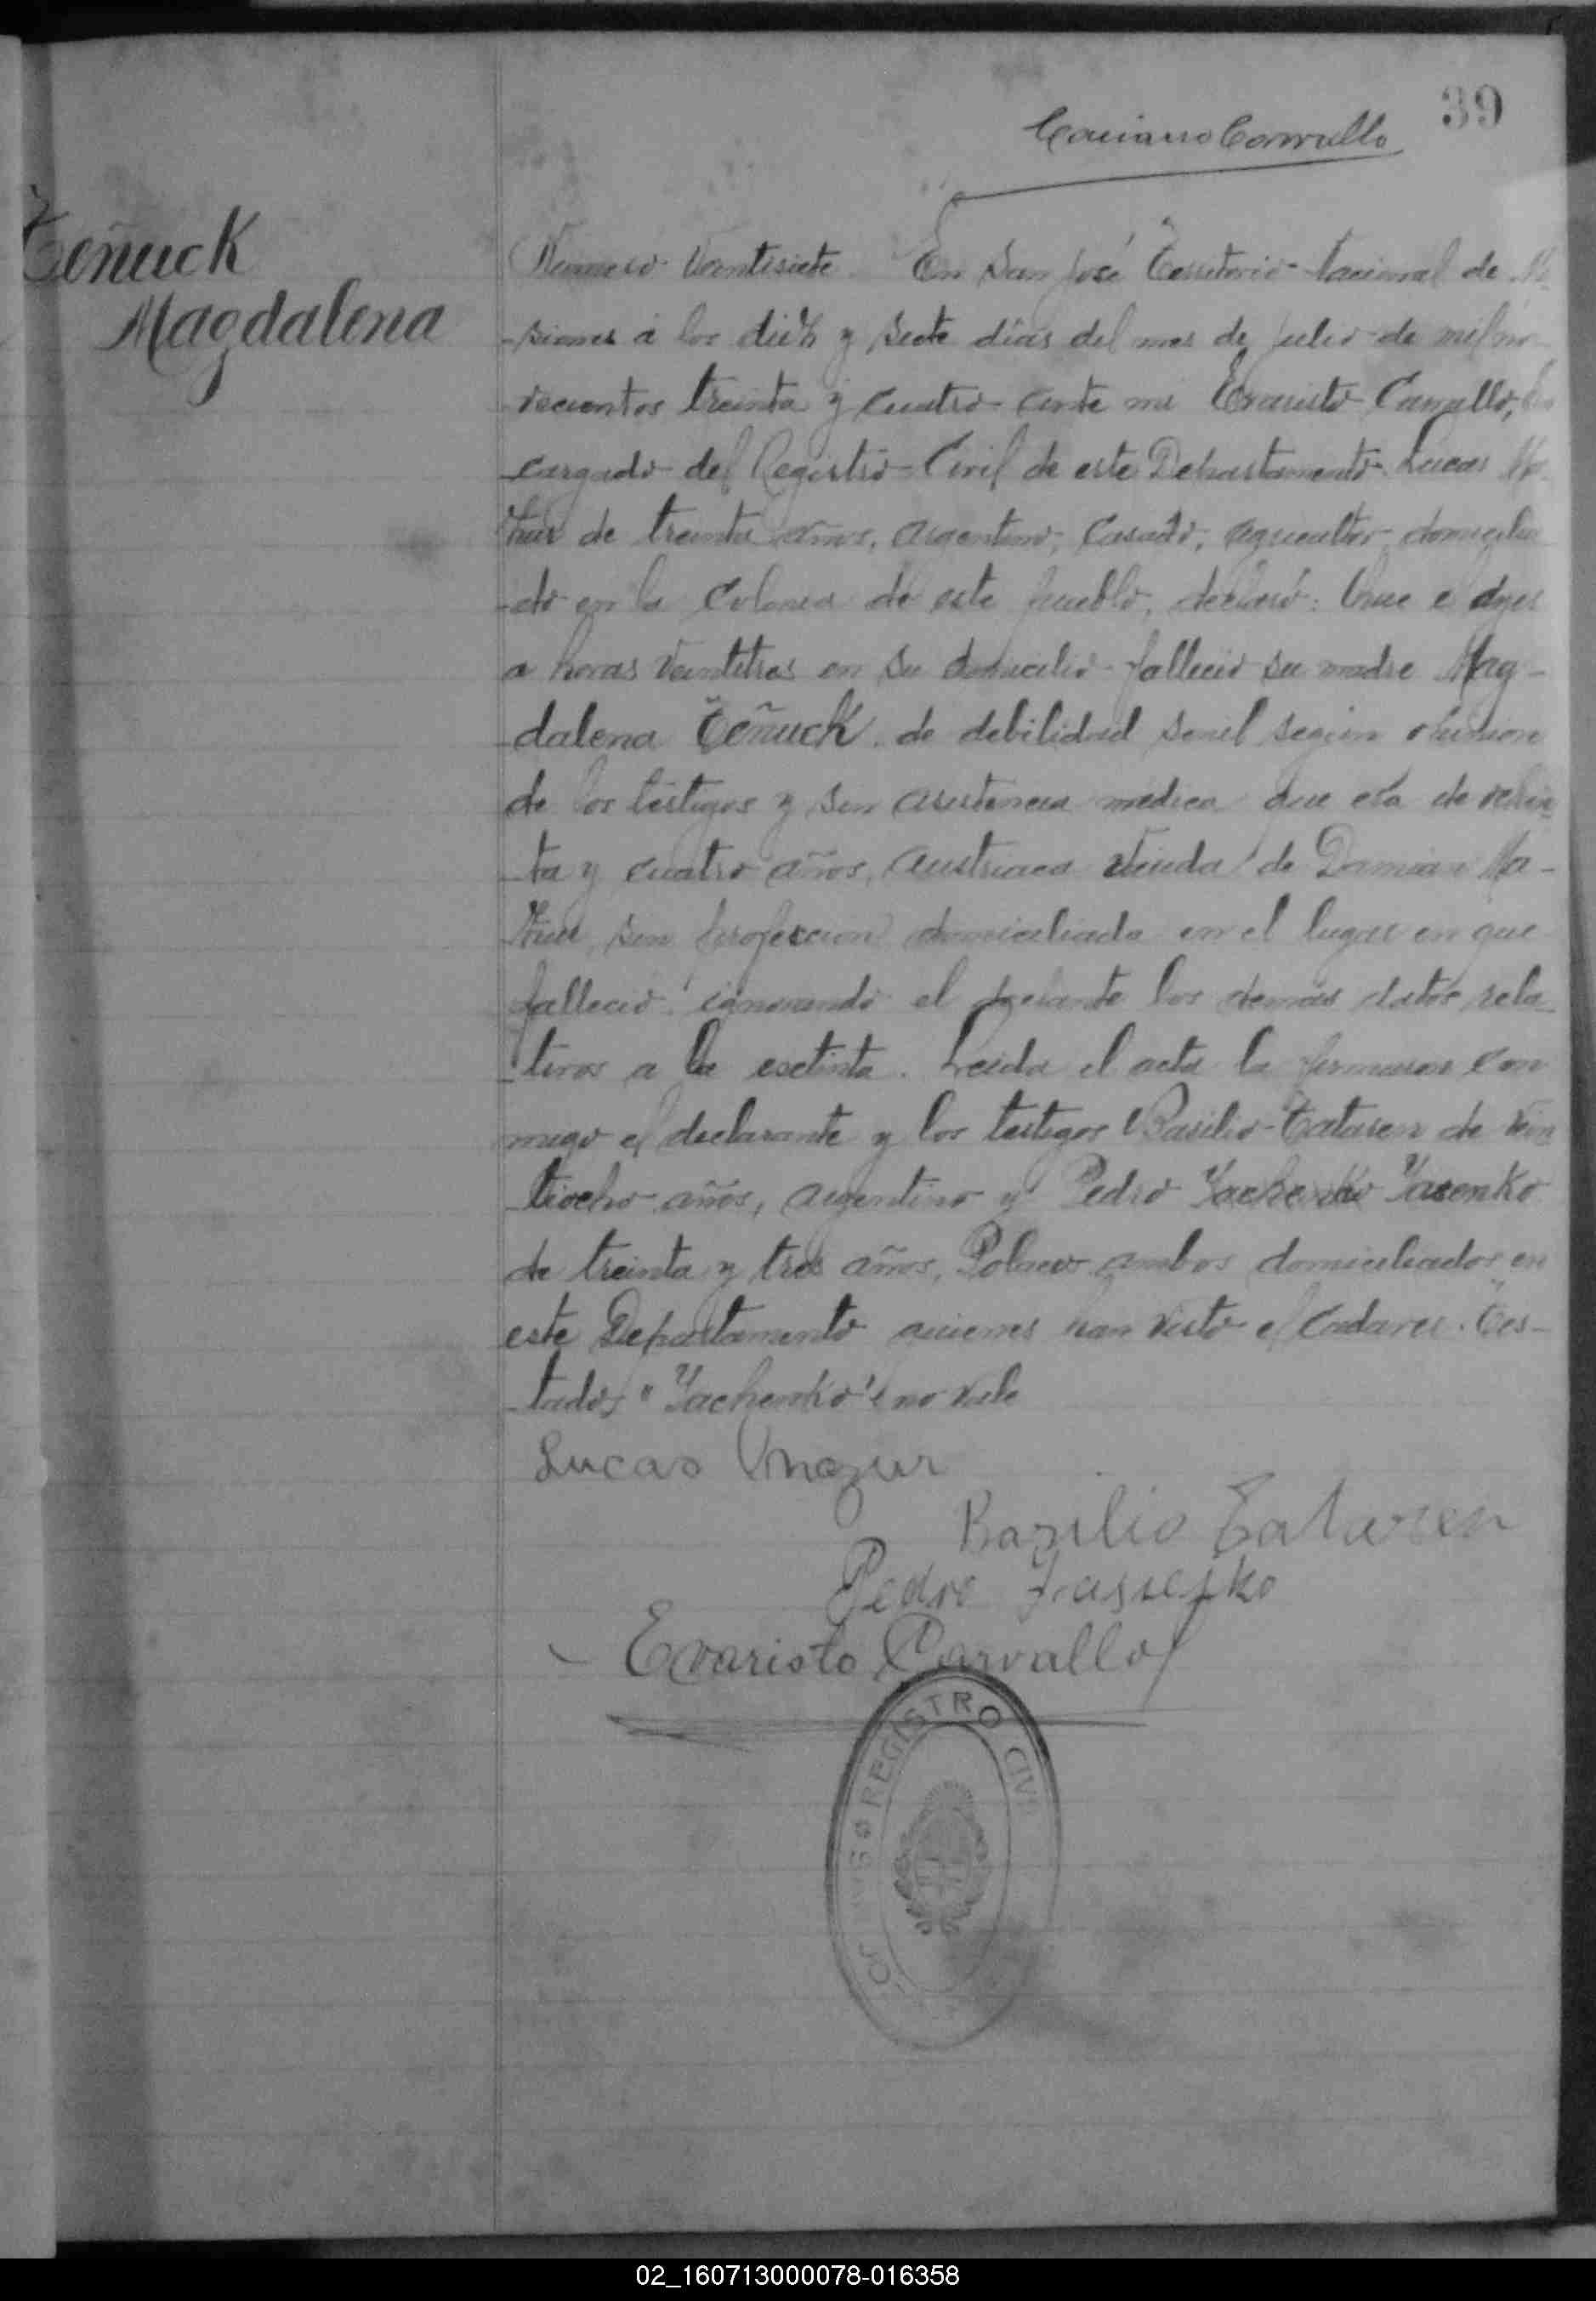 39
Carvallo
Teñuck
Magdalena
Número Veintisiete. En San José Territorio Nacional de Mi-
-siones á los diez y siete días del mes de julio de mil no-
-vecientos treinta y cuatro ante mi Evaristo Carvallo, En
-cargado del Registro Civil de este Departamento Lucas Ma
zur de treinta años, argentino, casado, agricultor domicilia
-do en la Colonia de este pueblo, declaró: Que el dyer
a horas veintitres en su domicilio falleció su madre Mag-
-dalena Teñuck de debilidad senil según opinion
de los testigos y sin asistencia médica que era de
-ta y cuatro años, austriaca viuda de Damian Ma-
zur, sin profesion domiciliada en el lugar en que
falleció ignorando el los demás datos rela-
-tivos a la exctinta. Leida el acta la firmaron con
migo el declarante y los testigos Basilio Tataren de vein
tiocho años, argentino y Pedro Yachenko Yasenko
de treinta y tres años, Polaco ambos domiciliados en
este Departamento quienes han visto el cadaver. Tes-
-tados "Yachenko" no vale
Lucas Mazur
Bazilio Tataren
Pedro
Evaristo Carvallo
REGISTRO CIVIL
02_160713000078-016358